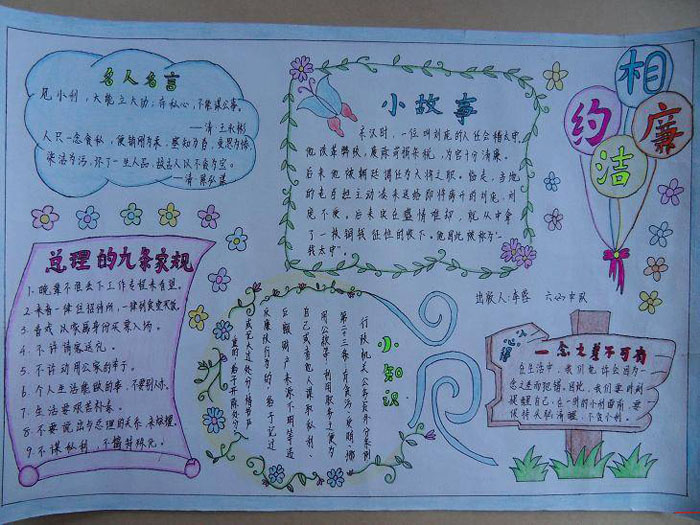 名人名言
见小利,不能立大功;存私心,不能谋公事。
——清 王永彬
人只一念贪私,便销刚为柔,塞智为昏,变恩为惨,
染洁为污,坏了一生人品,故古人以不贪为宝。
小故事
东汉时,一位叫刘宠的人任会稽太守,
他改革弊政,废除苛捐杂税,为官十分清廉。
后来他被朝廷调任为大将之职。临走,当地
的老百姓主动凑来送给即将离开的刘宠,刘
宠不受。后来实在盛情难却,就从中拿
了一枚铜钱征性的收下。他因此被称为"一
钱太守"。
相约廉洁
总理的九条家规
1.晚辈不准丢下工作专程来看望。
2.来者一律住招待所,一律到食堂买饭。
3.看戏以家属身份买票入场。
4.不许请客送礼。
5.不许动用公家的车子。
6.个人生活能做的事,不要别人办。
7.生活要艰苦朴素。
8.不要说出与总理的关系,来炫耀。
9.不谋私利,不搞特殊化。
小知识
行政机关公务员处分条例
第二十三条:有贪污、
用公款等利用职务之便为
自己或者他人谋取私利、
巨额财产来源不明等违
反廉政行为的,给予记过
或记大过处分;情节严
重的,给予开除处分。
出版人:车蓉 六(4)中队
小心
一念之差不可有
在生活中,我们也许会因为一
念之差而犯错。因此,我们要时刻
提醒自己,在一时的小利面前,要
保持头脑清醒,不贪小利。